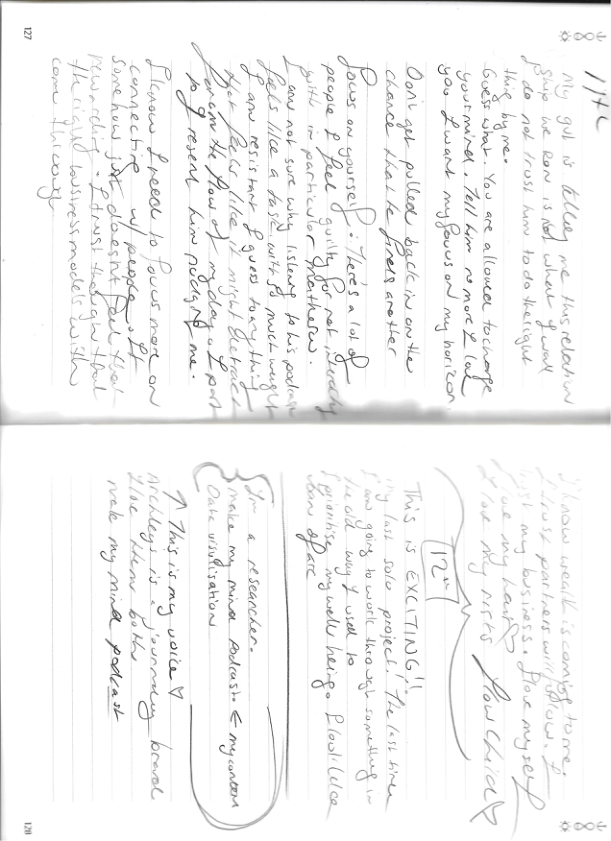 127
11th
My gut is telling me this relation
ship we own is not what I want
I do not trust him to do the right
thing by me.
Guess what. You are allowed to change
your mind. Tell him no more
you I want my focus on my horizon.
Don't get pulled back in on the
chance that he finds another
Focus on yourself. There's a lot of
people I feel guilty for not
with in particular Mathew.
I am not sure why listening to his podcast
feels like a task with so much weight
I am resistant I guess to anything
that feels like it might detract
from the flow of my day
so I resent him pushing me.
I know I need to focus more on
connecting w/ people. It
somehow just doesn't feel that
rewarding. I trust though that
the right business models with
come through
I know wealth is coming to me.
I trust partners will follow. I
trust my business. I love myself
I love my hair
I love my Flow Child
12th
This is EXCITING!!
My last solo project! The last time
I am going to work through something in
the old way I used to
I prioritise my well being.
I'm a researcher.
make my mind podcast ← my content
Data visualisation
↑ This is my voice ♡
Archleys is a journaling brand
I love them both
make my mind podcast
128